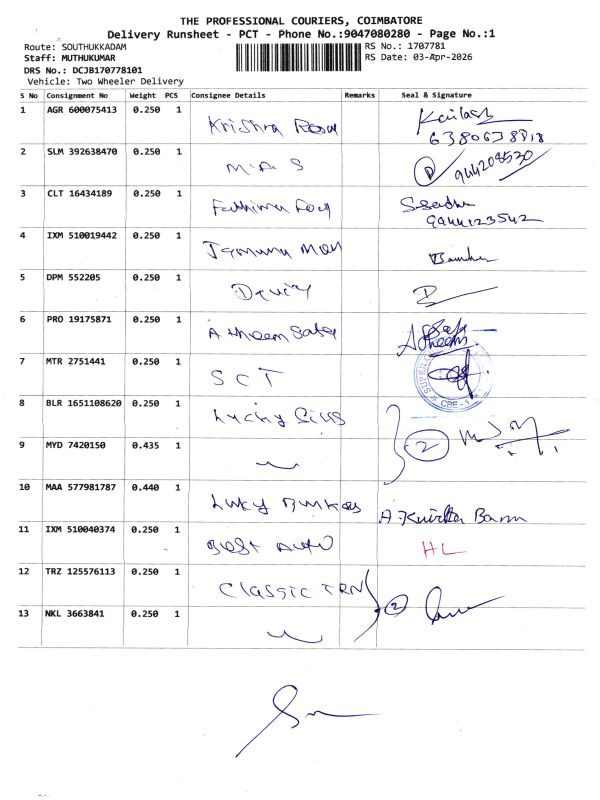 THE PROFESSIONAL COURIERS, COIMBATORE
Delivery Runsheet - PCT - Phone No.:9047080280 - Page No.:1
Route: SOUTHUKKADAM
RS No.: 1707781
Staff: MUTHUKUMAR
RS Date: 03-Apr-2026
DRS No.: DCJB170778101
Vehicle: Two Wheeler Delivery
S No Consignment No Weight PCS Consignee Details Remarks Seal & Signature
1 AGR 600075413 0.250 1 Krishna Kailash
6380638818
2 SLM 392638470 0.250 1 M.A.S
3 CLT 16434189 0.250 1 Fathima
9944123542
4 IXM 510019442 0.250 1 Jamuna
5 DPM 552205 0.250 1
6 PRO 19175871 0.250 1
7 MTR 2751441 0.250 1 SCT
SUPER CBE - 1
8 BLR 1651108620 0.250 1 Lucky
2
9 MYD 7420150 0.435 1
10 MAA 577981787 0.440 1 A
11 IXM 510040374 0.250 1 Best Auto HL
12 TRZ 125576113 0.250 1 Classic TRN 2
13 NKL 3663841 0.250 1